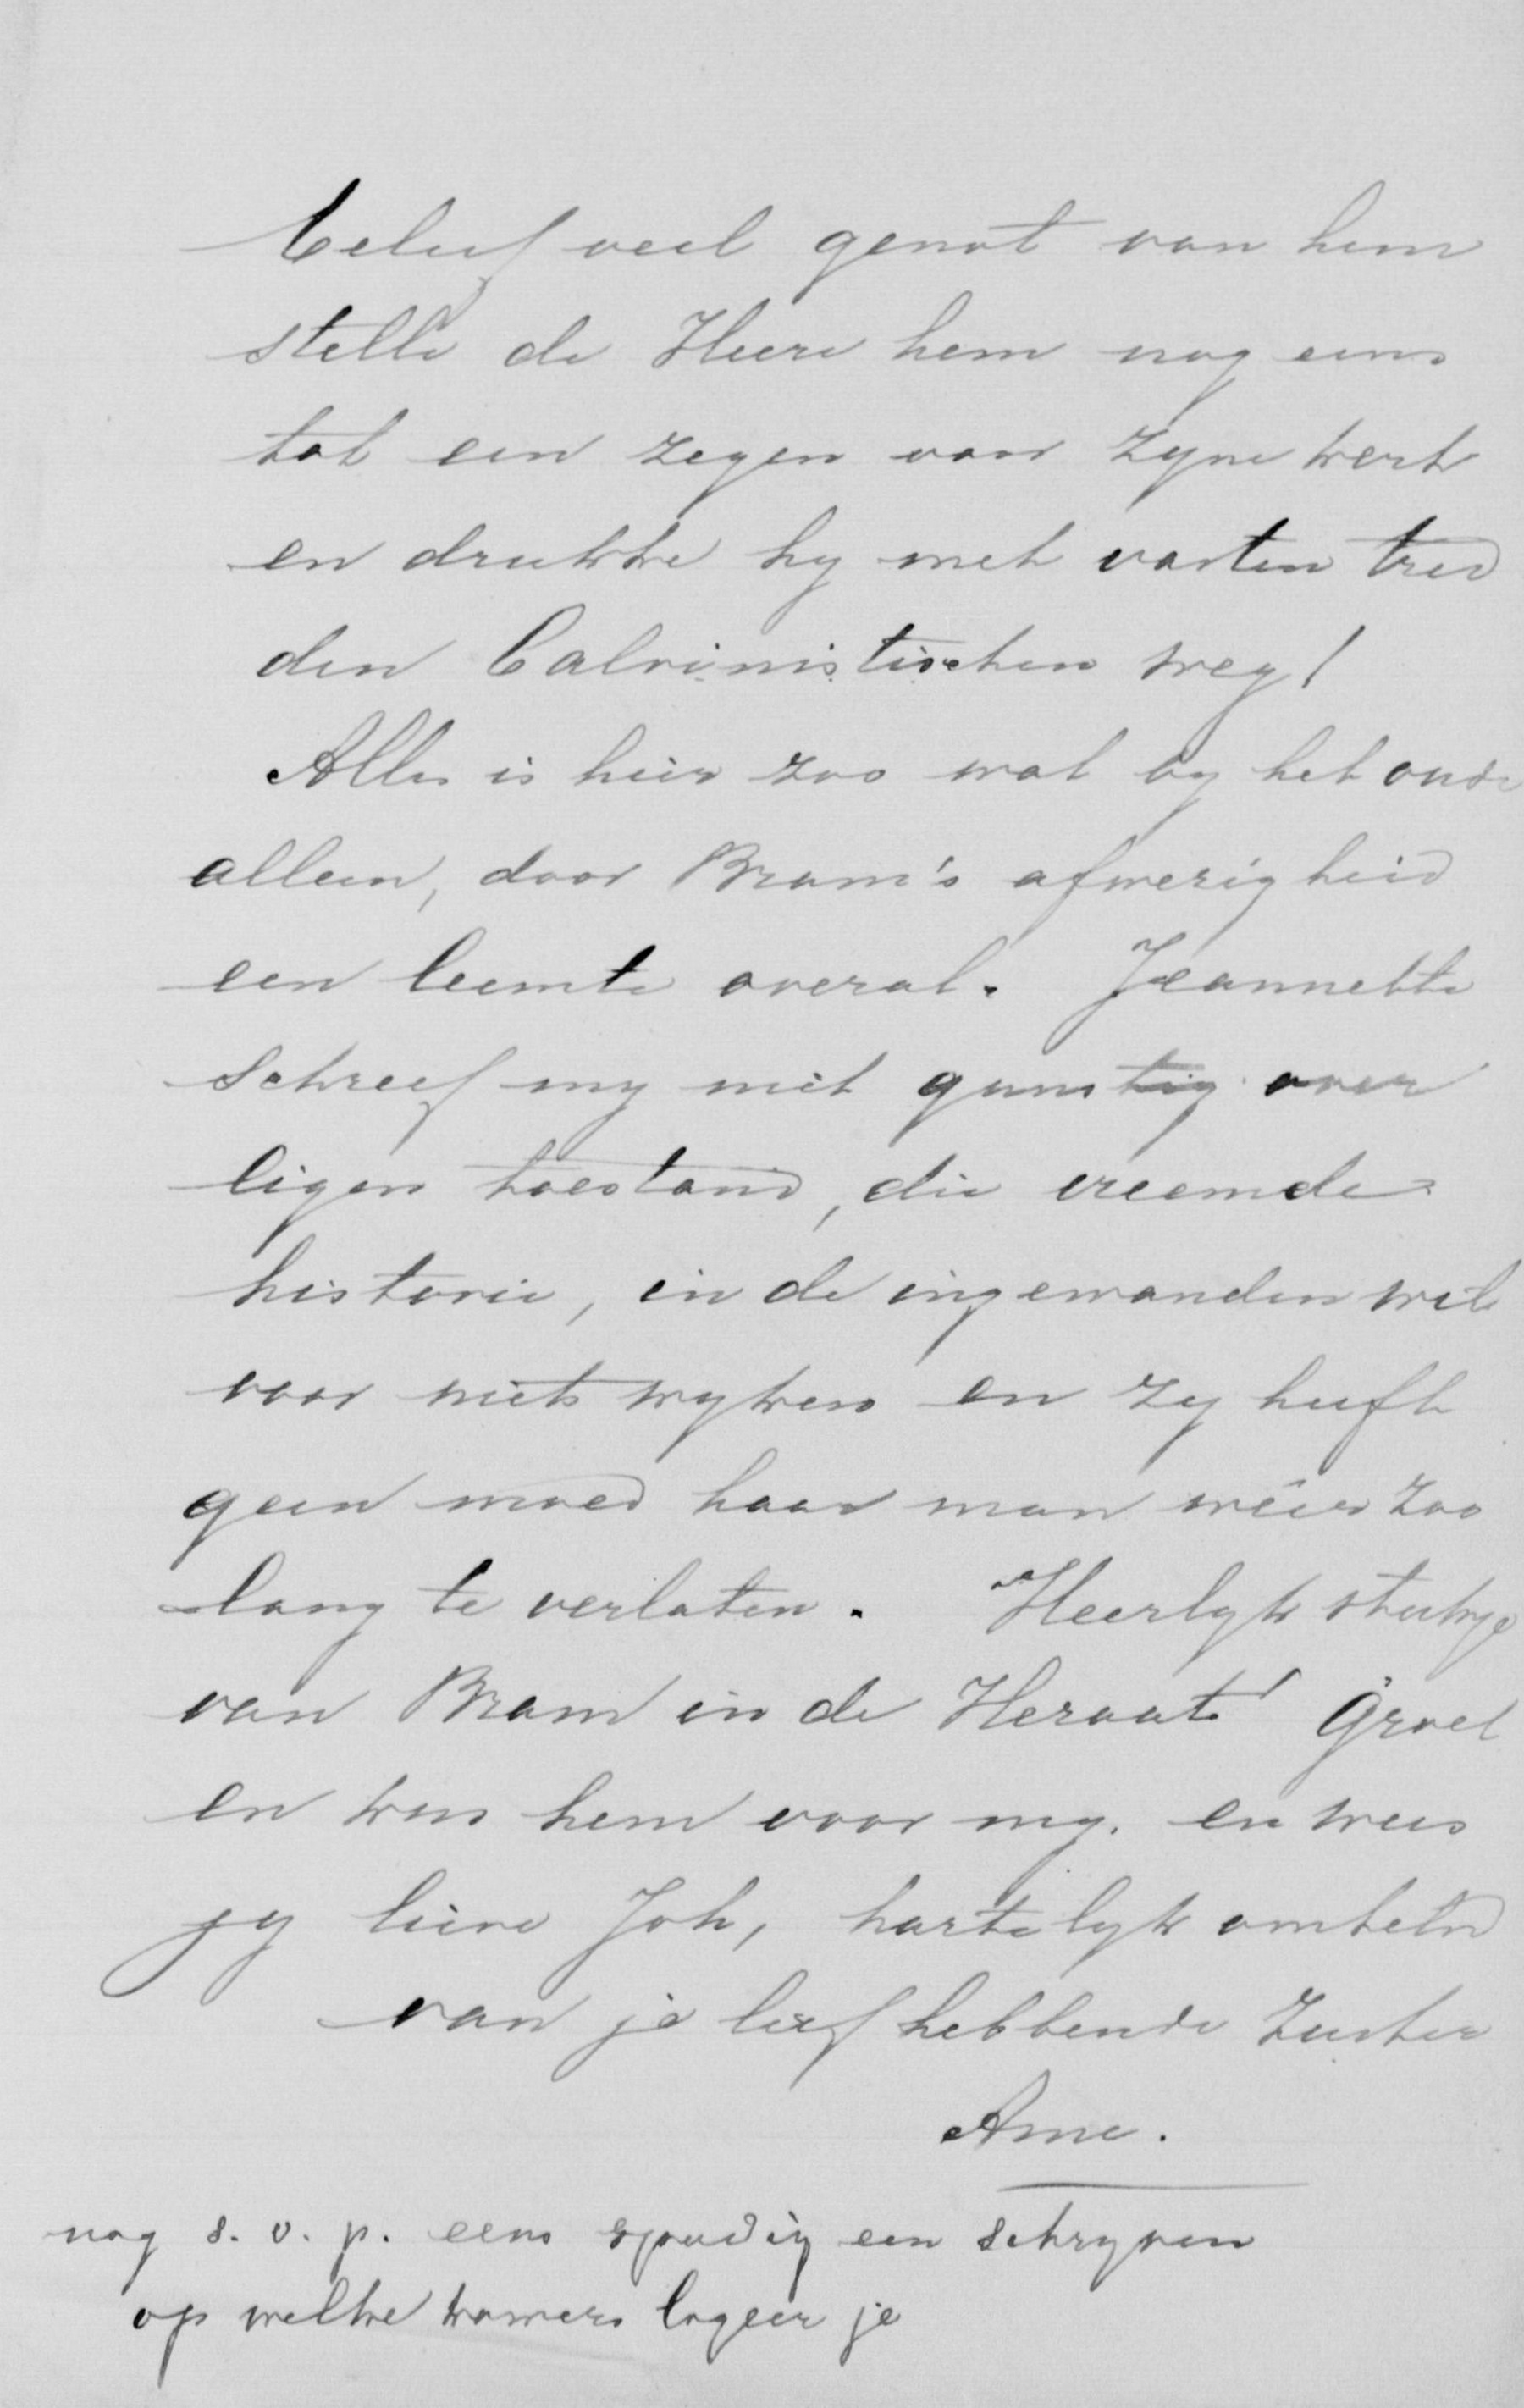 beleef veel genot van hem
stelle de Heere hem nog eens
tot een zegen voor zyne kerk
en drukke hy met vasten tred
den Calvinistischen weg!
Alles is hier zoo wat by het oude
alleen, door Bram's afwezigheid
een leemte overal. Jeannette
schreef my niet gunstig over
eigen toestand, die vreemde
historie, in de ingewanden wil
voor niets wyken en zy heeft
geen moed haar man wéér zoo
lang te verlaten. Heerlyk stukje
van Bram in de Heraut! Groet
en kus hem voor my. en wees
jy lieve Joh, hartelyk omhelsd
van je liefhebbende Zuster
Anna.
nog s. v. p. eens spoedig een schryven
op welke kamers logeer je